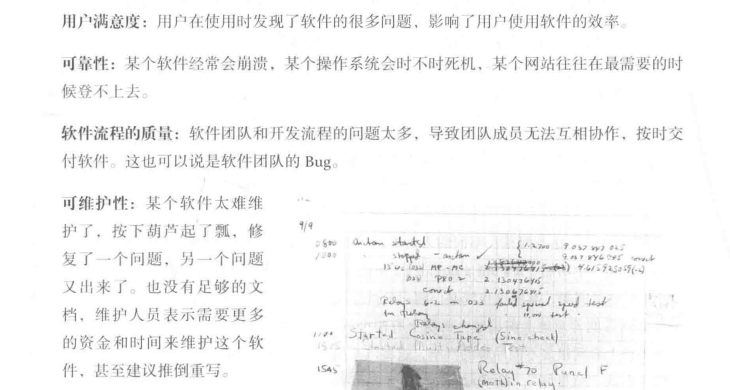 用户满意度：用户在使用时发现了软件的很多问题，影响了用户使用软件的效率。
可靠性：某个软件经常会崩溃，某个操作系统会时不时死机，某个网站往往在最需要的时
候登不上去。
软件流程的质量：软件团队和开发流程的问题太多，导致团队成员无法互相协作，按时交
付软件。这也可以说是软件团队的 Bug。
可维护性：某个软件太难维
护了，按下葫芦起了瓢，修
复了一个问题，另一个问题
又出来了。也没有足够的文
档，维护人员表示需要更多
的资金和时间来维护这个软
件，甚至建议推倒重写。
9/9
0800 antan started
1000 stopped - antan ✓
13" MP-MC
PRO 2 2.130476415
correct 2.130676415
Relays 6-2 in 033 failed special speed test
in relay
Relays changed
1100 Started Cosine Tape (Sine check)
1525 Started Multi Adder Test
1545 Relay #70 Panel F
(moth) in relay.